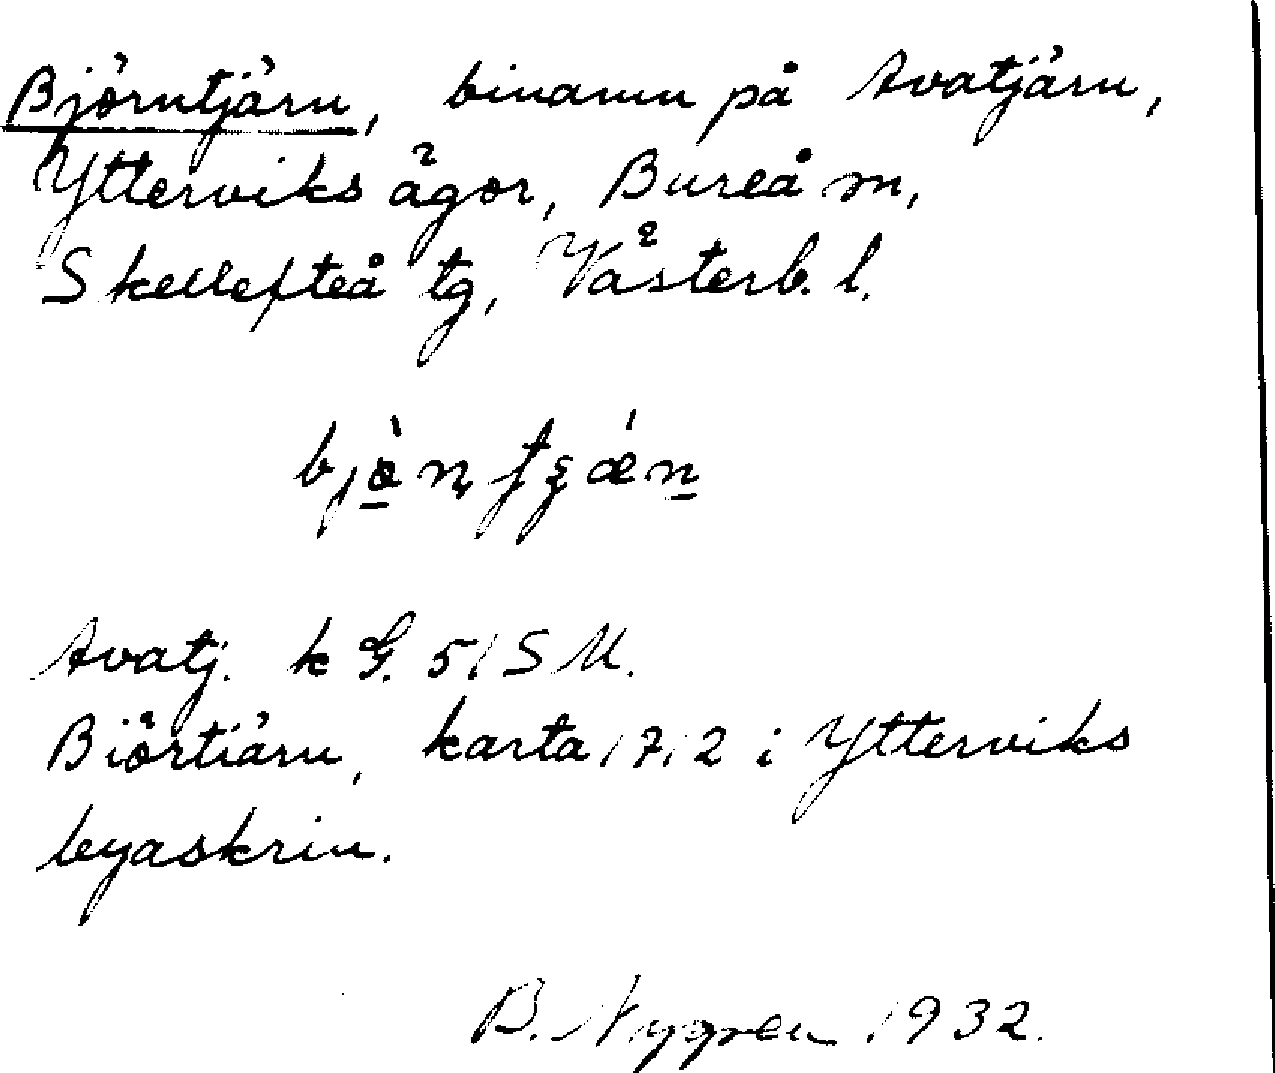 Björntjärn, binamn på Avatjärn,
Ytterviks ägor, Bureå m,
Skellefteå tg, Västerb. l.
Avatj. k G. 51 S M.
Biörtiärn, karta 1712 i Ytterviks
byaskrin.
B. Nygren 1932.